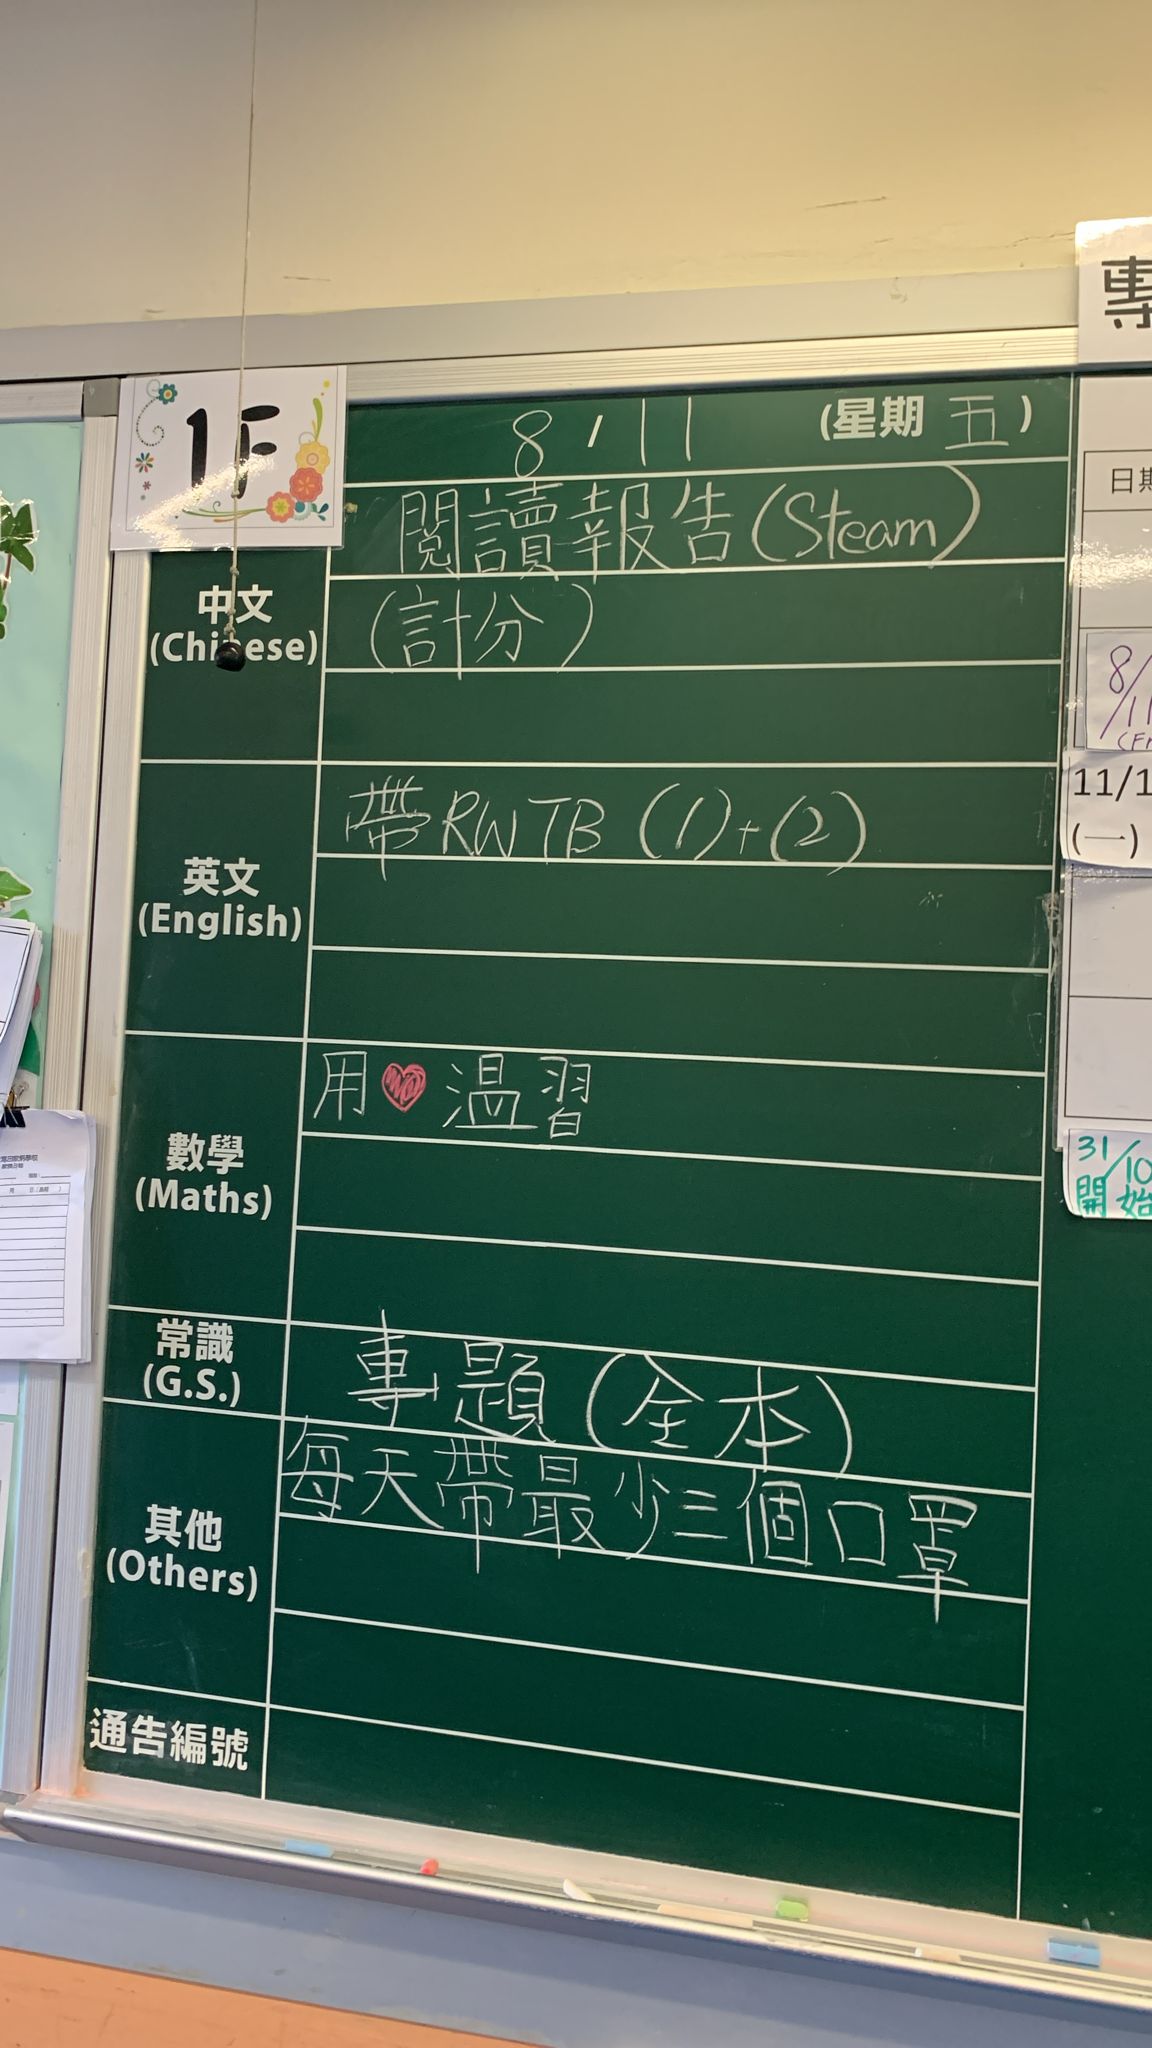 1F
8 / 11 (星期 五)
閱讀報告(Steam)
中文
(Chinese)
(計分)
帶RWTB (1)+(2)
英文
(English)
用♥溫習
數學
(Maths)
常識
(G.S.)
專題(全本)
每天帶最少三個口罩
其他
(Others)
通告編號
專
日期
8/11
11/1
(一)
31/10
開始